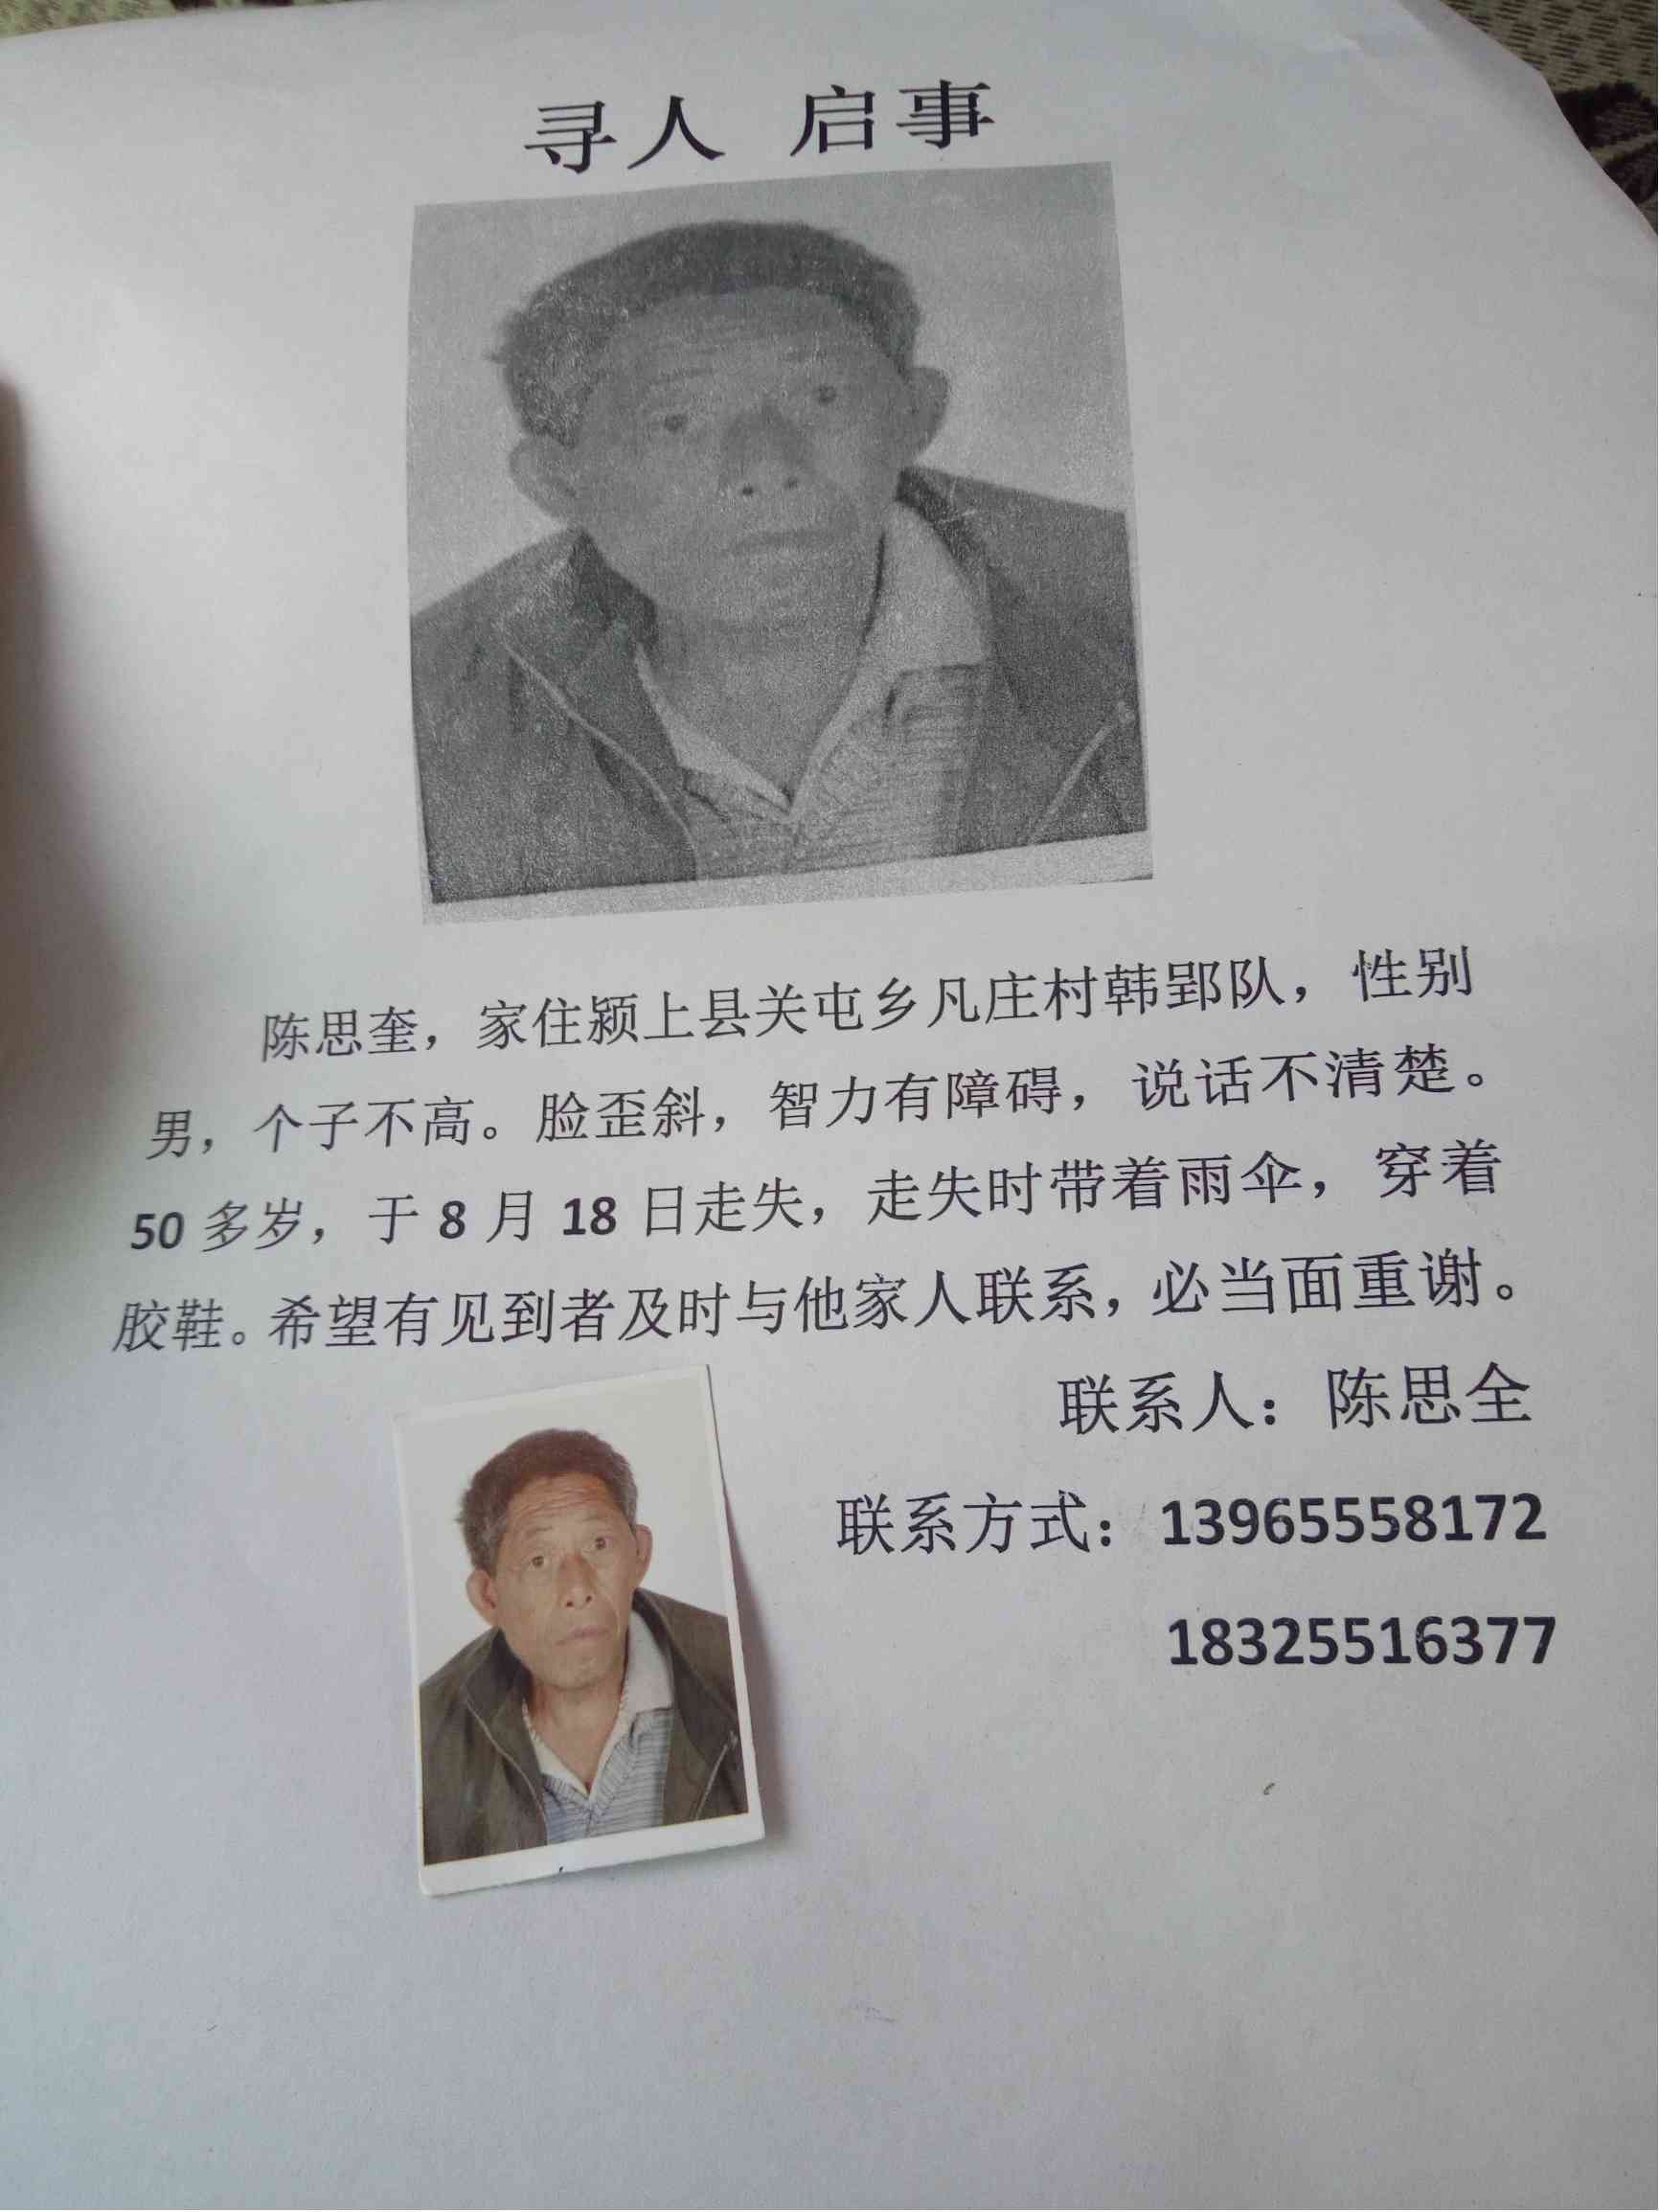 寻人 启事
陈思奎，家住颍上县关屯乡凡庄村韩郢队，性别
男，个子不高。脸歪斜，智力有障碍，说话不清楚。
50 多岁，于 8 月 18 日走失，走失时带着雨伞，穿着
胶鞋。希望有见到者及时与他家人联系，必当面重谢。
联系人：陈思全
联系方式：13965558172
18325516377